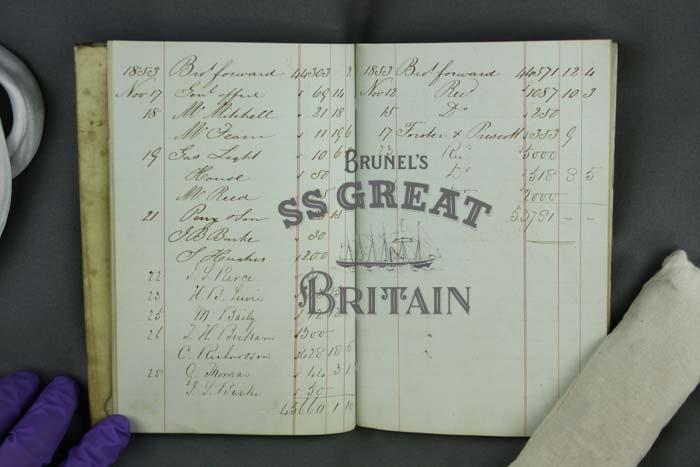 1853 Brot forward 44303
Novr 17 Genl office 69 14
18 Mr Mitchell 21 18
Mr Fearn 11 19 6
19 Gas Light 10 6
House 50
Mr Reed
21 Perry & Son
J B Burke 30
200
22 J S Pierce
23 H. B. Lewis
25 Mr Baily
26 J. H. Bertram 300
C. Richardson 428 18 5
28 G. Thomas 44 3 1
J. S. Burke 50
45660 1 10
1853 Brot forward 44571 12 4
Novr 12 Recd 1057 10 3
15 Do 250
17 Forster & Prescott 383 9
Recd 5000
Do 518 8 5
2000
53781 - -
BRUNEL'S
SS GREAT
BRITAIN